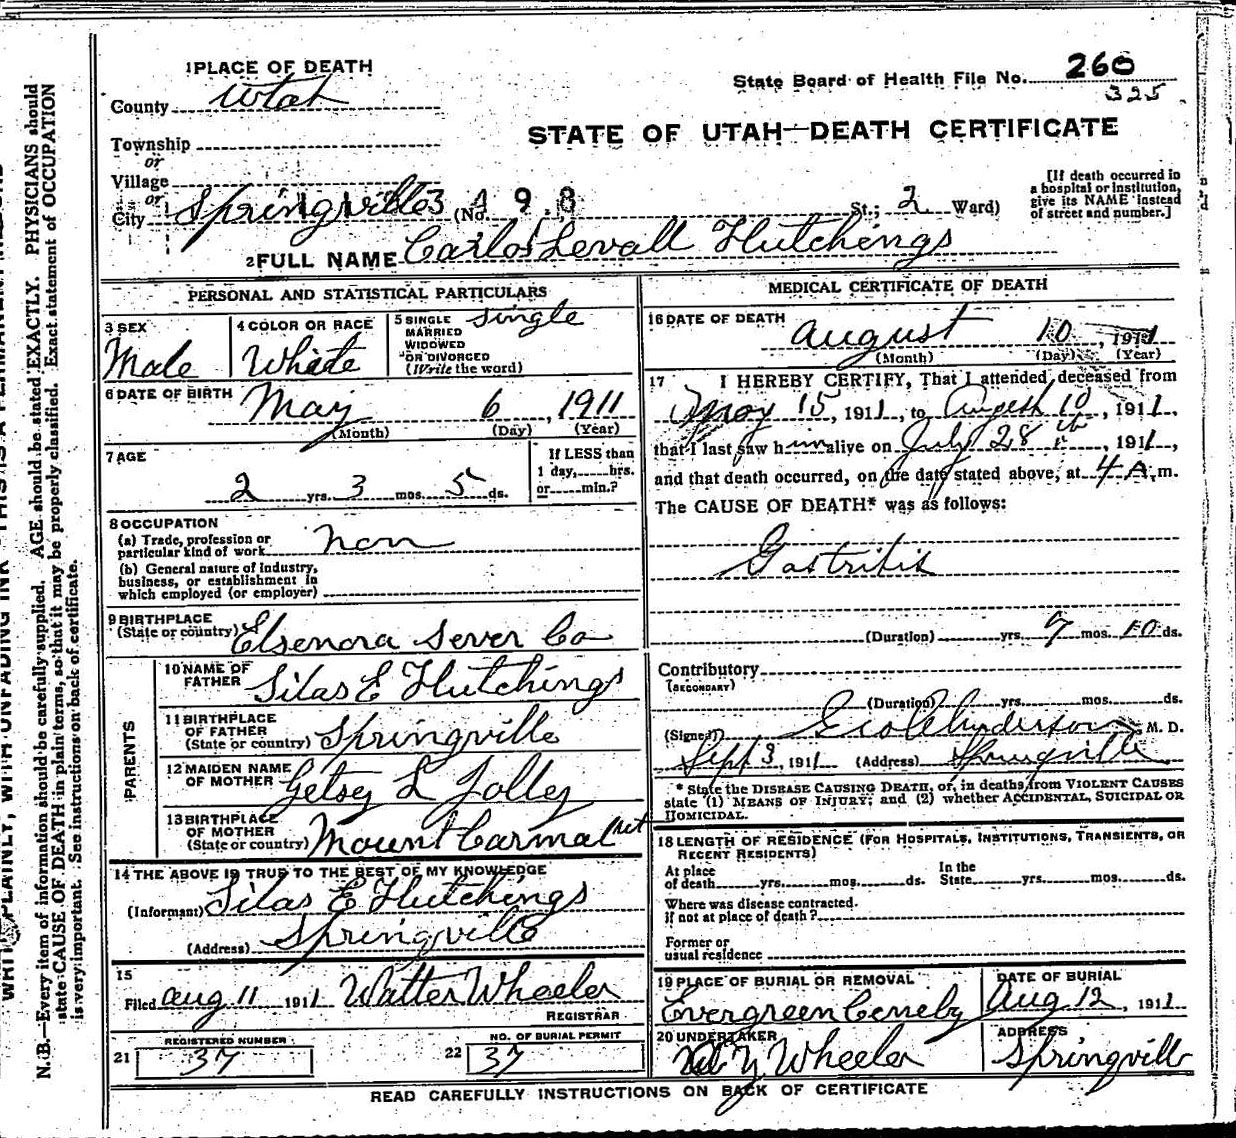 1 PLACE OF DEATH
State Board of Health File No. 260
County Utah
325
STATE OF UTAH—DEATH CERTIFICATE
Township
or
Village
or
City Springville (No. St.; 2 Ward)
[If death occurred in a hospital or institution, give its NAME instead of street and number.]
2 FULL NAME Carlos Levall Hutchings
PERSONAL AND STATISTICAL PARTICULARS
3 SEX
Male
4 COLOR OR RACE
White
5 SINGLE MARRIED WIDOWED OR DIVORCED (Write the word)
Single
6 DATE OF BIRTH
May 6, 1911
(Month) (Day) (Year)
7 AGE
2 yrs. 3 mos. 5 ds.
If LESS than 1 day, hrs. or min.?
8 OCCUPATION
(a) Trade, profession or particular kind of work non
(b) General nature of industry, business, or establishment in which employed (or employer)
9 BIRTHPLACE
(State or country) Elsenora Sever Co
PARENTS
10 NAME OF FATHER Silas E Hutchings
11 BIRTHPLACE OF FATHER (State or country) Springville
12 MAIDEN NAME OF MOTHER Getsey L Jolley
13 BIRTHPLACE OF MOTHER (State or country) Mount Carmal
14 THE ABOVE IS TRUE TO THE BEST OF MY KNOWLEDGE
(Informant) Silas E Hutchings
(Address) Springville
15
Filed Aug 11 1911 Walter Wheeler
REGISTRAR
REGISTERED NUMBER
21 37
NO. OF BURIAL PERMIT
22 37
MEDICAL CERTIFICATE OF DEATH
16 DATE OF DEATH
August 10, 1911
(Month) (Day) (Year)
17 I HEREBY CERTIFY, That I attended deceased from
May 15, 1911, to 10, 1911,
that I last saw him alive on July 28th, 1911,
and that death occurred, on the date stated above, at 4 A. m.
The CAUSE OF DEATH* was as follows:
Gastritis
(Duration) yrs. mos. 10 ds.
Contributory
(SECONDARY)
(Duration) yrs. mos. ds.
(Signed) Geo Anderson M. D.
Sept 3, 1911 (Address) Springville
* State the DISEASE CAUSING DEATH, or, in deaths from VIOLENT CAUSES
state (1) MEANS OF INJURY; and (2) whether ACCIDENTAL, SUICIDAL OR
HOMICIDAL.
18 LENGTH OF RESIDENCE (FOR HOSPITALS, INSTITUTIONS, TRANSIENTS, OR
RECENT RESIDENTS)
At place of death yrs. mos. ds. In the State yrs. mos. ds.
Where was disease contracted.
if not at place of death?
Former or
usual residence
19 PLACE OF BURIAL OR REMOVAL
Evergreen
DATE OF BURIAL
Aug 12, 1911
20 UNDERTAKER
Wheeler
ADDRESS
Springville
READ CAREFULLY INSTRUCTIONS ON BACK OF CERTIFICATE
N.B.—Every item of information should be carefully supplied. AGE should be stated EXACTLY. PHYSICIANS should
state CAUSE OF DEATH in plain terms, so that it may be properly classified. Exact statement of OCCUPATION
is very important. See instructions on back of certificate.